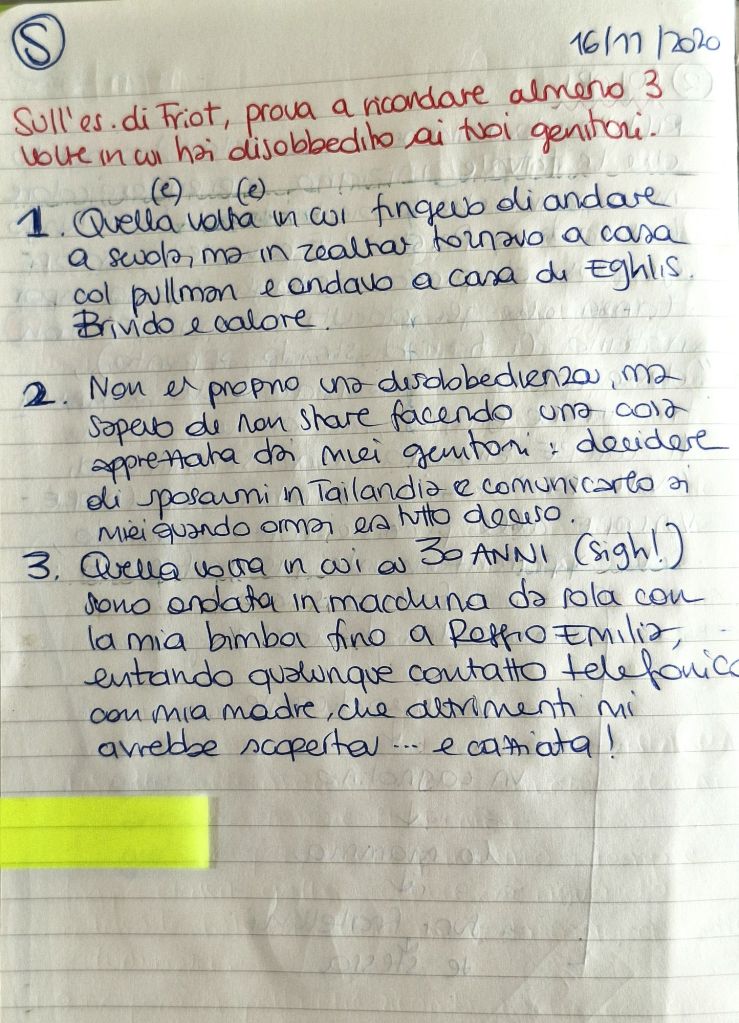 S
16/11/2020
Sull'es. di Friot, prova a ricordare almeno 3
volte in cui hai disobbedito ai tuoi genitori.
(e) (e)
1. Quella volta in cui fingevo di andare
a scuola, ma in realtà tornavo a casa
col pullman e andavo a casa di Eghlis.
Brivido e calore.
2. Non è proprio una disobbedienza, ma
sapevo di non stare facendo una cosa
apprezzata dai miei genitori: decidere
di sposarmi in Tailandia e comunicarlo ai
miei quando ormai era tutto deciso.
3. Quella volta in cui a 30 ANNI (sigh!)
sono andata in macchina da sola con
la mia bimba fino a Reggio Emilia,
evitando qualunque contatto telefonico
con mia madre, che altrimenti mi
avrebbe scoperta ... e cazziata!